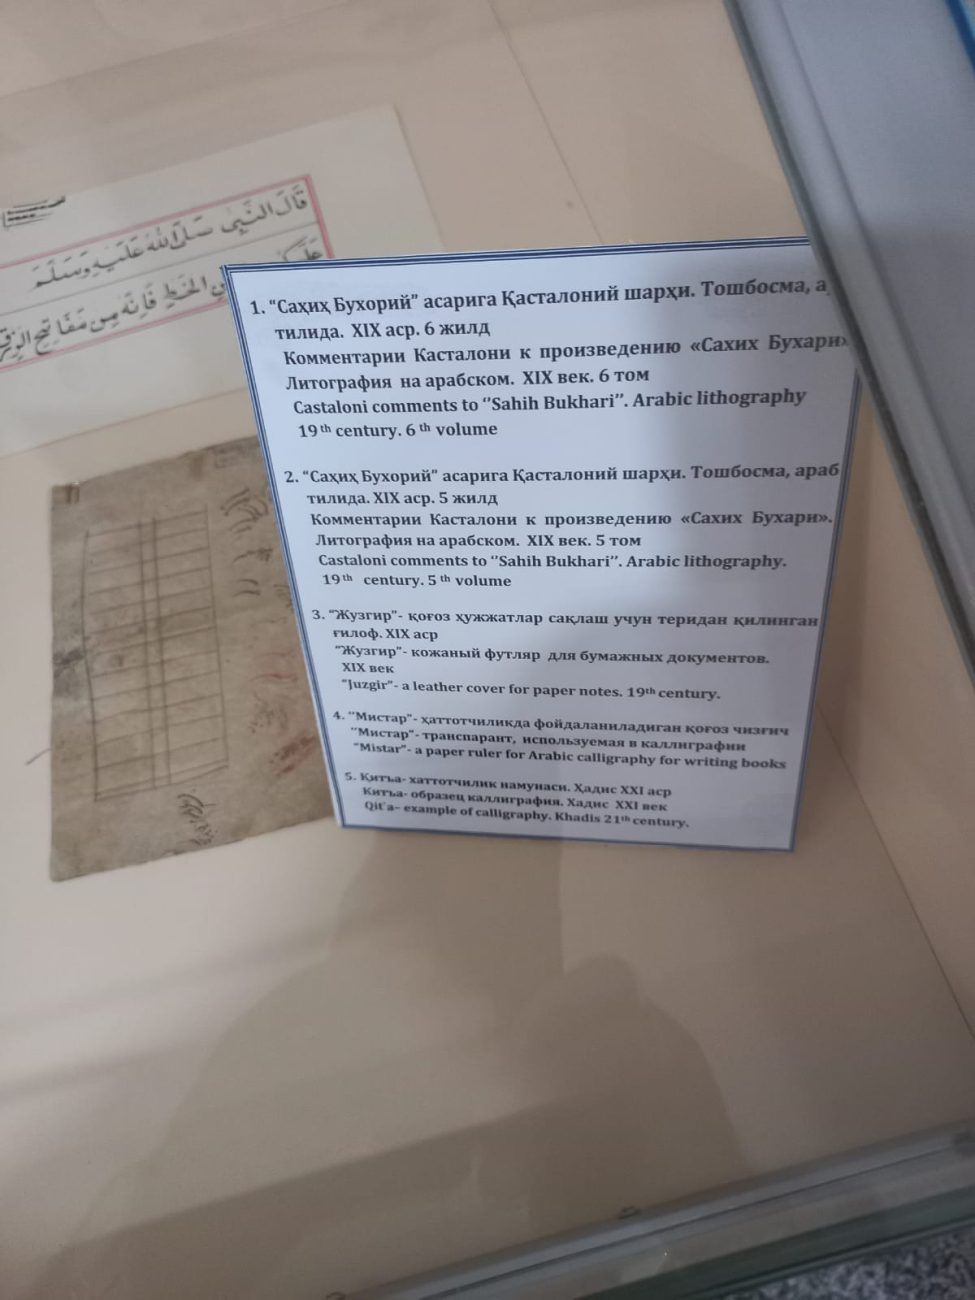 قَالَ النَّبِيُّ صَلَّى اللهُ عَلَيْهِ وَسَلَّمَ
الخَطِّ فَإِنَّهُ مِنْ مَفَاتِيحِ
1. “Саҳиҳ Бухорий” асарига Қасталоний шарҳи. Тошбосма, а
тилида. XIX аср. 6 жилд
Комментарии Касталони к произведению «Сахих Бухари»
Литография на арабском. XIX век. 6 том
Castaloni comments to “Sahih Bukhari”. Arabic lithography
19th century. 6th volume
2. “Саҳиҳ Бухорий” асарига Қасталоний шарҳи. Тошбосма, араб
тилида. XIX аср. 5 жилд
Комментарии Касталони к произведению «Сахих Бухари».
Литография на арабском. XIX век. 5 том
Castaloni comments to “Sahih Bukhari”. Arabic lithography.
19th century. 5th volume
3. “Жузгир”- қоғоз ҳужжатлар сақлаш учун теридан қилинган
ғилоф. XIX аср
“Жузгир”- кожаный футляр для бумажных документов.
XIX век
“Juzgir”- a leather cover for paper notes. 19th century.
4. “Мистар”- ҳаттотчиликда фойдаланиладиган қоғоз чизғич
“Мистар”- транспарант, используемая в каллиграфии
“Mistar”- a paper ruler for Arabic calligraphy for writing books
5. Қитъа- хаттотчилик намунаси. Ҳадис XXI аср
Китъа- образец каллиграфия. Хадис XXI век
Qit'a– example of calligraphy. Khadis 21th century.